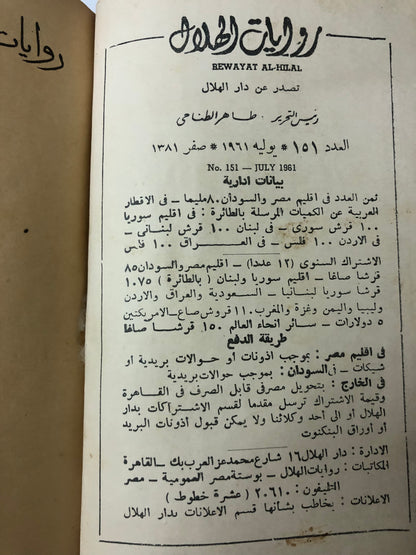 روايات
روايات الهلال
REWAYAT AL-HILAL
تصدر عن دار الهلال
رئيس التحرير : طاهر الطناحي
العدد ١٥١ * يوليه ١٩٦١ * صفر ١٣٨١
No. 151 — JULY 1961
بيانات ادارية
ثمن العدد في اقليم مصر والسودان ٨٠ مليما – في الاقطار
العربية عن الكميات المرسلة بالطائرة : في اقليم سوريا
١٠٠ قرش سوري – في لبنان ١٠٠ قرش لبناني –
في الاردن ١٠٠ فلس – في العراق ١٠٠ فلس
الاشتراك السنوي (١٢ عددا) – اقليم مصر والسودان ٨٥
قرشا صاغا – اقليم سوريا ولبنان ( بالطائرة ) ١٠٧٥
قرشا سوريا لبنانيا – السعودية والعراق والاردن
وليبيا واليمن وغزة والمغرب ١١٠ قروش صاغ – الامريكتين
٥ دولارات – سائر انحاء العالم ١٥٠ قرشا صاغا
طريقة الدفع
في اقليم مصر : بموجب اذونات أو حوالات بريدية او
شيكات – في السودان : بموجب حوالات بريدية
في الخارج : بتحويل مصرفي قابل الصرف في القاهرة
وقيمة الاشتراك ترسل مقدما لقسم الاشتراكات بدار
الهلال او الى أحد وكلائنا ولا يمكن قبول أذونات البريد
أو أوراق البنكنوت
الادارة : دار الهلال ١٦ شارع محمد عز العرب بك – القاهرة
المكاتبات : روايات الهلال – بوستة مصر العمومية – مصر
التليفون : ٢٠٦١٠ ( عشرة خطوط )
الاعلانات : يخاطب بشأنها قسم الاعلانات بدار الهلال